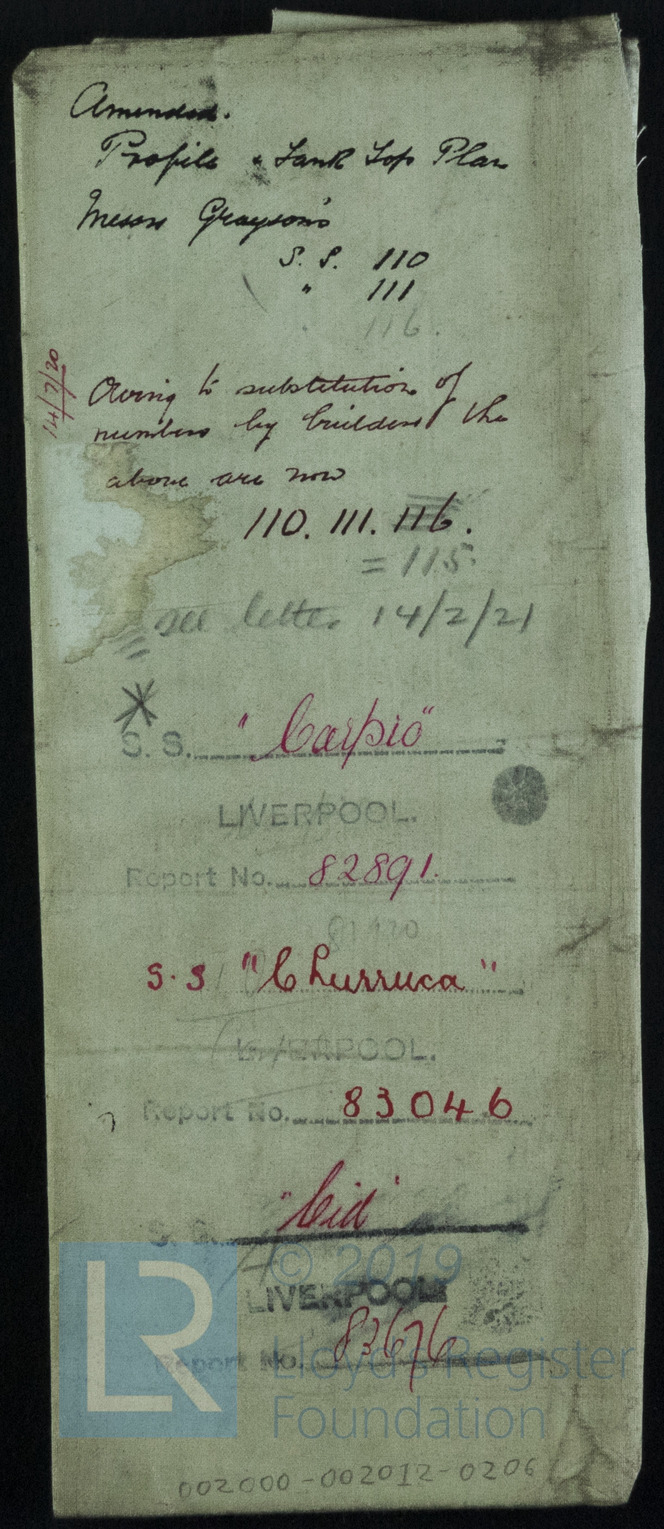 Amended.
Profile & Tank Top Plan
Messrs Grayson's
S. S. 110
" 111
116.
14/7/20
Owing to substitution of
numbers by builders the
above are now
110. 111. 116.
= 115.
see letter 14/2/21
S. S. "Carpio"
LIVERPOOL.
Report No. 82891.
S.S "Churruca"
LIVERPOOL.
Report No. 83046
S. S. "Cid"
LIVERPOOL
Report No. 83676
LR
© 2019
Lloyd's Register
Foundation
002000-002012-0206